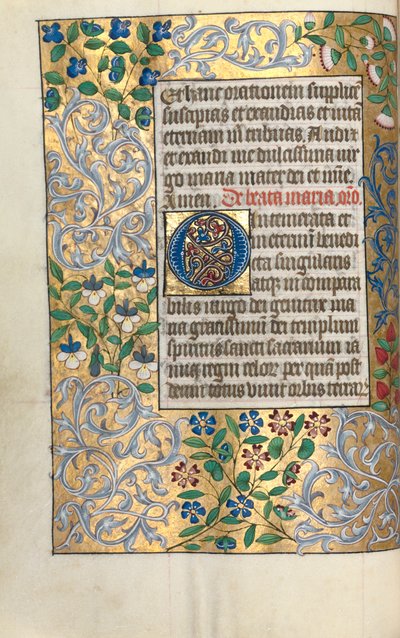 Et hanc orationem supplice
suscipias et exaudias et vita
eternam in tribuas. Audi
et exaudi me dulcissima vir
go maria mater dei et mie
Amen. De beata maria. oro.
O Intemerata et
in eternum benedi
cta singularis
atque in compara
bilis virgo dei genitrix ma
ria gratissimum dei templum
spiritus sancti sacrarium ia
nua regni celorum per quam post
deum totus vivit orbis terrar